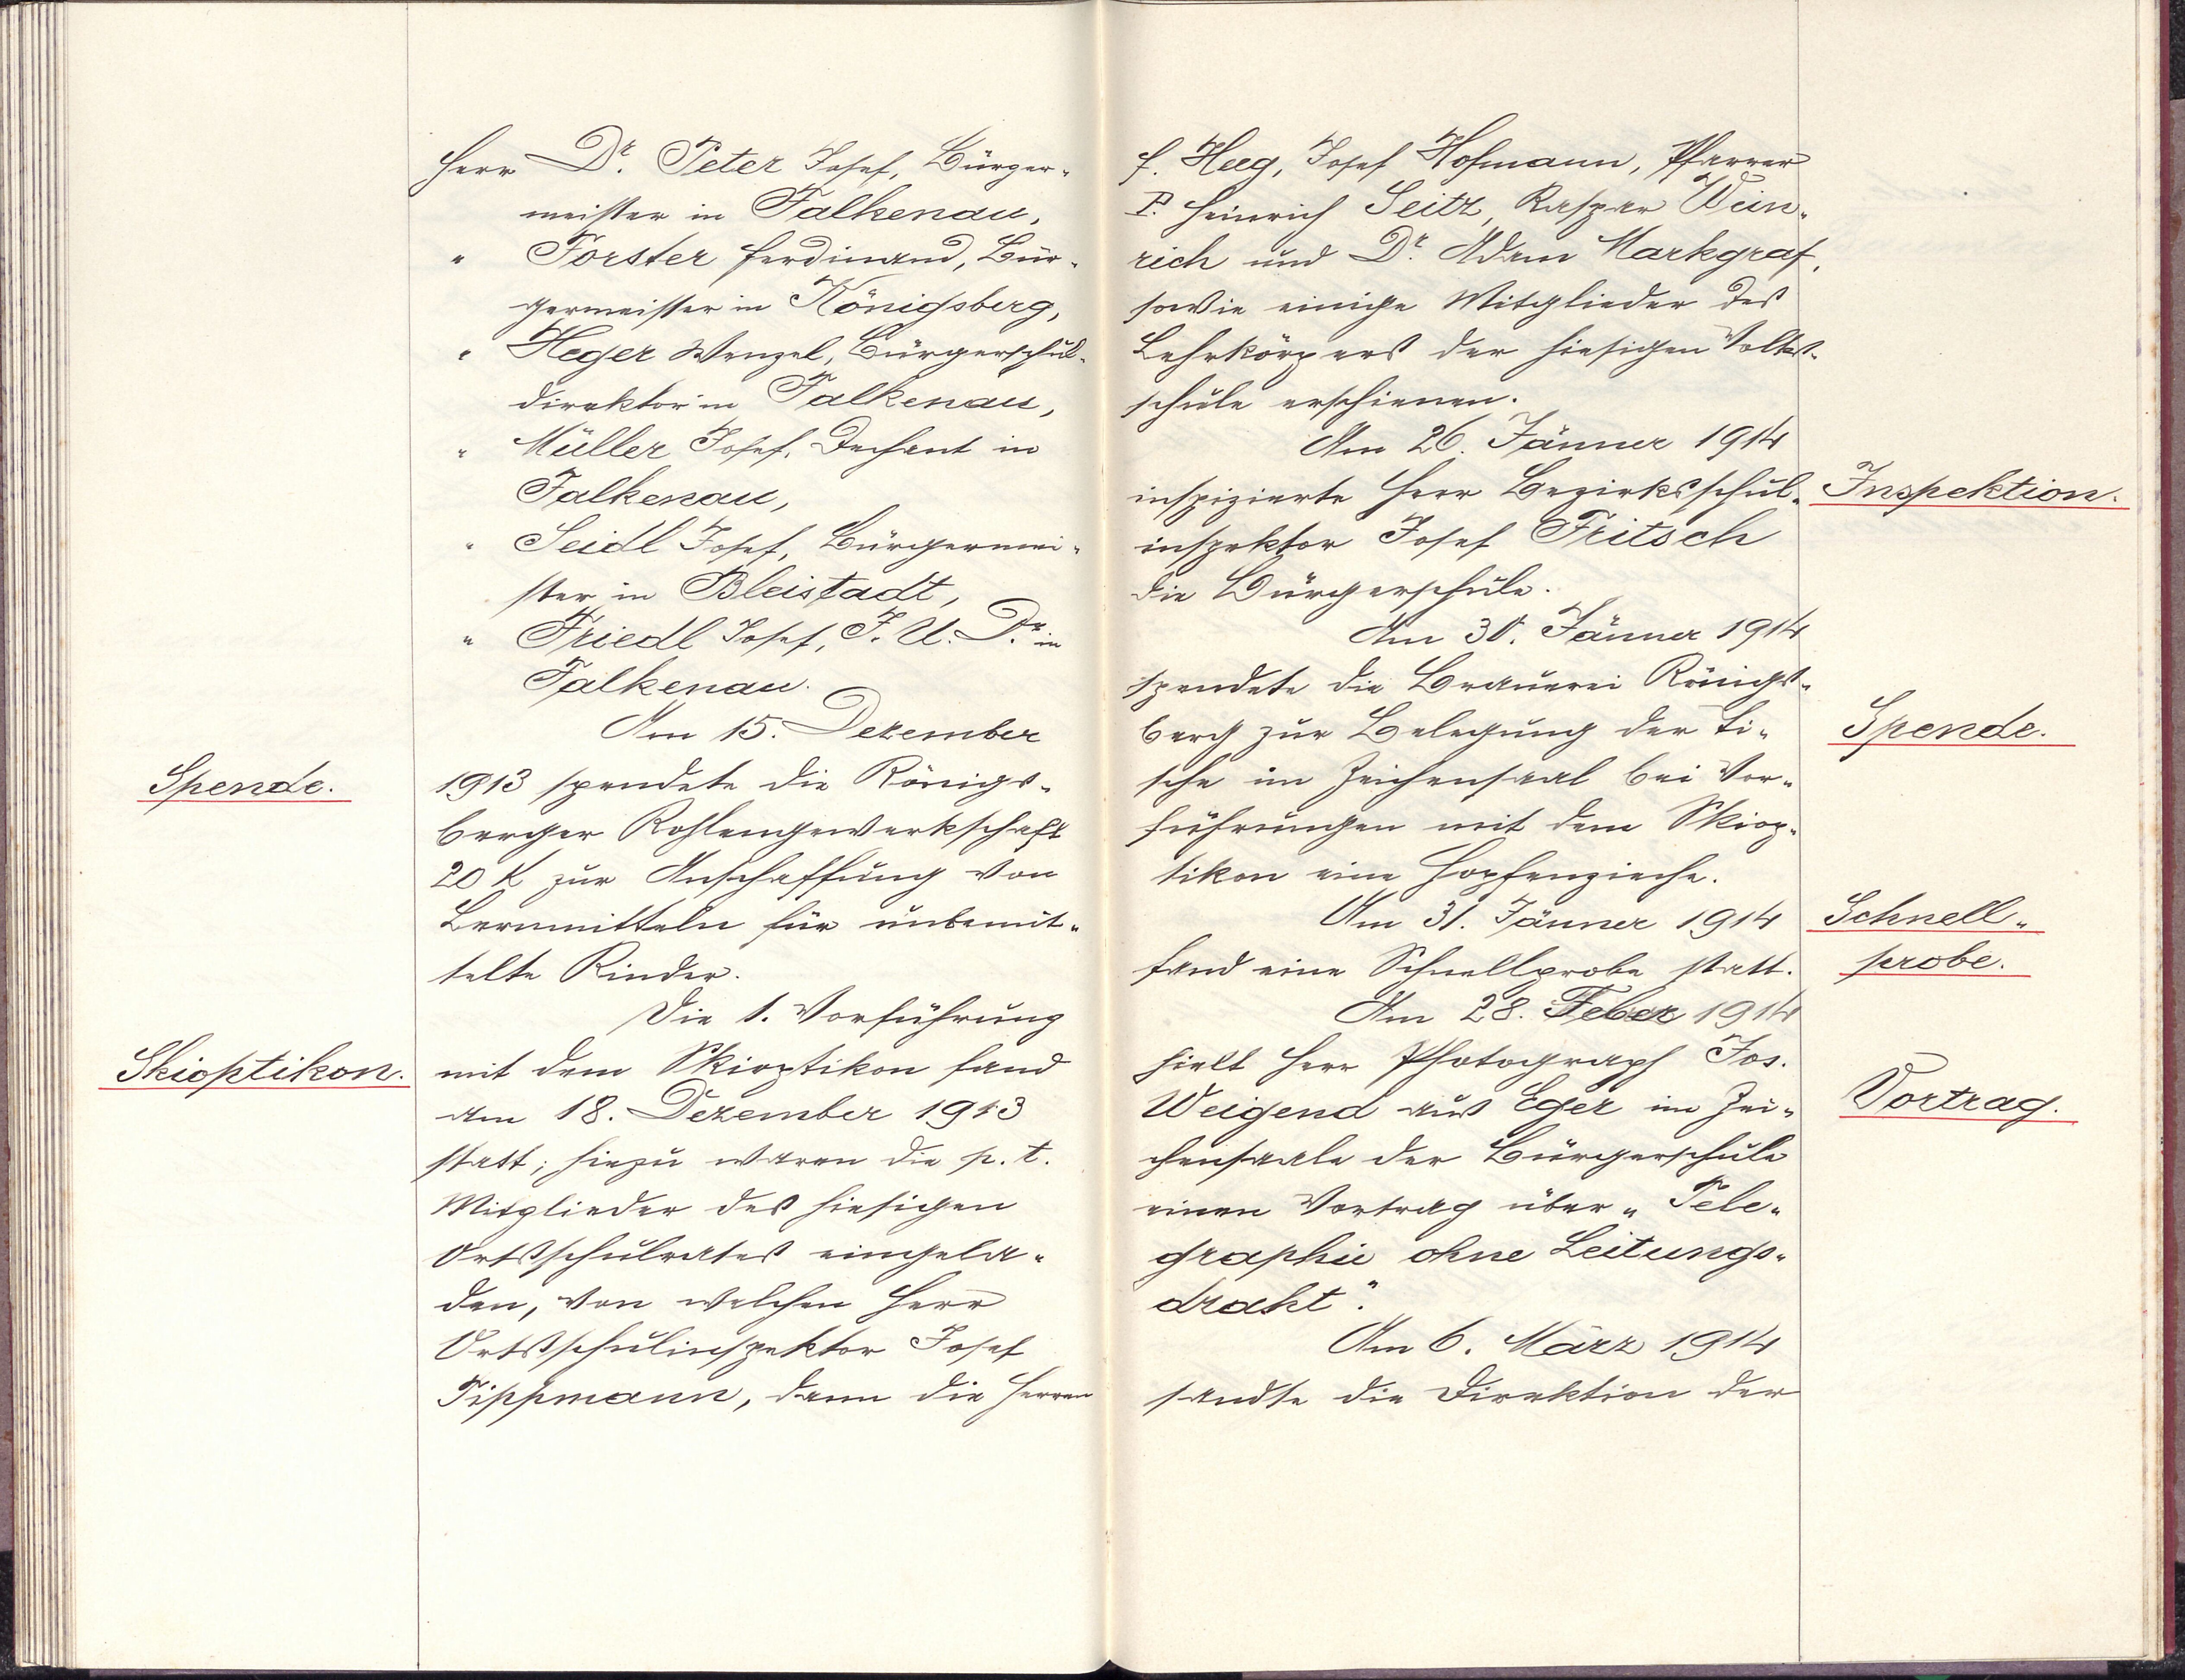 Herr Dr. Peter Josef, Bürger-
meister in Falkenau,
" Forster Ferdinand, Bür-
germeister in Königsberg,
" Heger Wenzel, Bürgerschul-
direktor in Falkenau,
" Müller Josef, Dechant in
Falkenau,
" Seidl Josef, Bürgermei-
ster in Bleistadt,
" Friedl Josef, J. U. Dr. in
Falkenau.
Am 15. Dezember
Spende.
1913 spendete die Königs-
berger Kohlengewerkschaft
20 K zur Anschaffung von
Lernmitteln für unbemit-
telte Kinder.
Die 1. Vorführung
Skioptikon.
mit dem Skioptikon fand
am 18. Dezember 1913
statt; hiezu waren die p. t.
Mitglieder des hiesigen
Ortsschulrates eingela-
den, von welchen Herr
Ortsschulinspektor Josef
Tippmann, dann die Herren
f. Heeg, Josef Hofmann, Pfarrer
P. Heinrich Seitz, Kaspar Wein-
rich und Dr. Adam Markgraf,
sowie einige Mitglieder des
Lehrkörpers der hiesigen Volks-
schule erschienen.
Am 26. Jänner 1914
inspizierte Herr Bezirksschul-
Inspektion.
inspektor Josef Fritsch
die Bürgerschule.
Am 30. Jänner 1914
spendete die Brauerei Königs-
berg zur Belegung der Ti-
Spende.
sche im Zeichensaal bei Vor-
führungen mit dem Skiop-
tikon eine Hopfenzieche.
Am 31. Jänner 1914
Schnell-
fand eine Schnellprobe statt.
probe.
Am 28. Feber 1914
hielt Herr Photograph Jos.
Weigend aus Eger im Zei-
Vortrag.
chensaale der Bürgerschule
einen Vortrag über „Tele-
graphie ohne Leitungs-
draht".
Am 6. März 1914
sandte die Direktion der